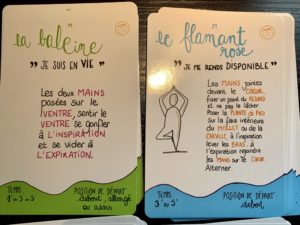 la baleine
" JE SUIS EN VIE "
Les deux MAINS
posées sur le
VENTRE, sentir le
VENTRE se gonfler
à L'INSPIRATION
et se vider à
L'EXPIRATION.
TEMPS
POSITION DE DÉPART :
debout, allongé
ou assis
21.
le flamant
rose
" JE ME RENDS DISPONIBLE "
Les MAINS jointes
devant le COEUR,
fixer un point du REGARD
et ne pas le lâcher.
Poser la PLANTE du PIED
sur la face intérieure
du MOLLET ou de la
CHEVILLE, à l'inspiration
lever les BRAS, à
l'expiration rejoindre
les MAINS sur le COEUR.
Alterner.
TEMPS
POSITION DE DÉPART :
debout